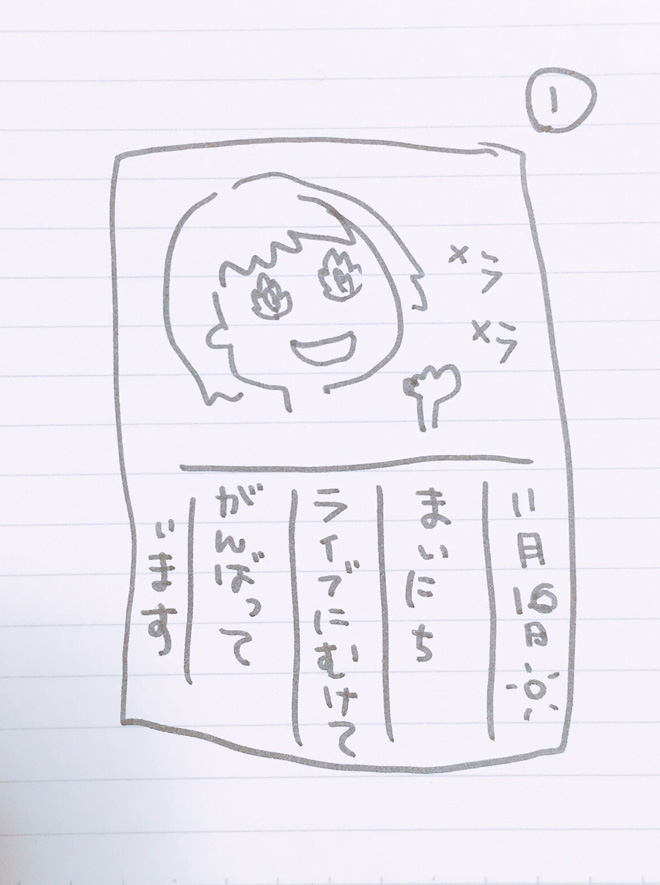 1
メラ
メラ
11月16日
まいにち
ライブにむけて
がんばって
います